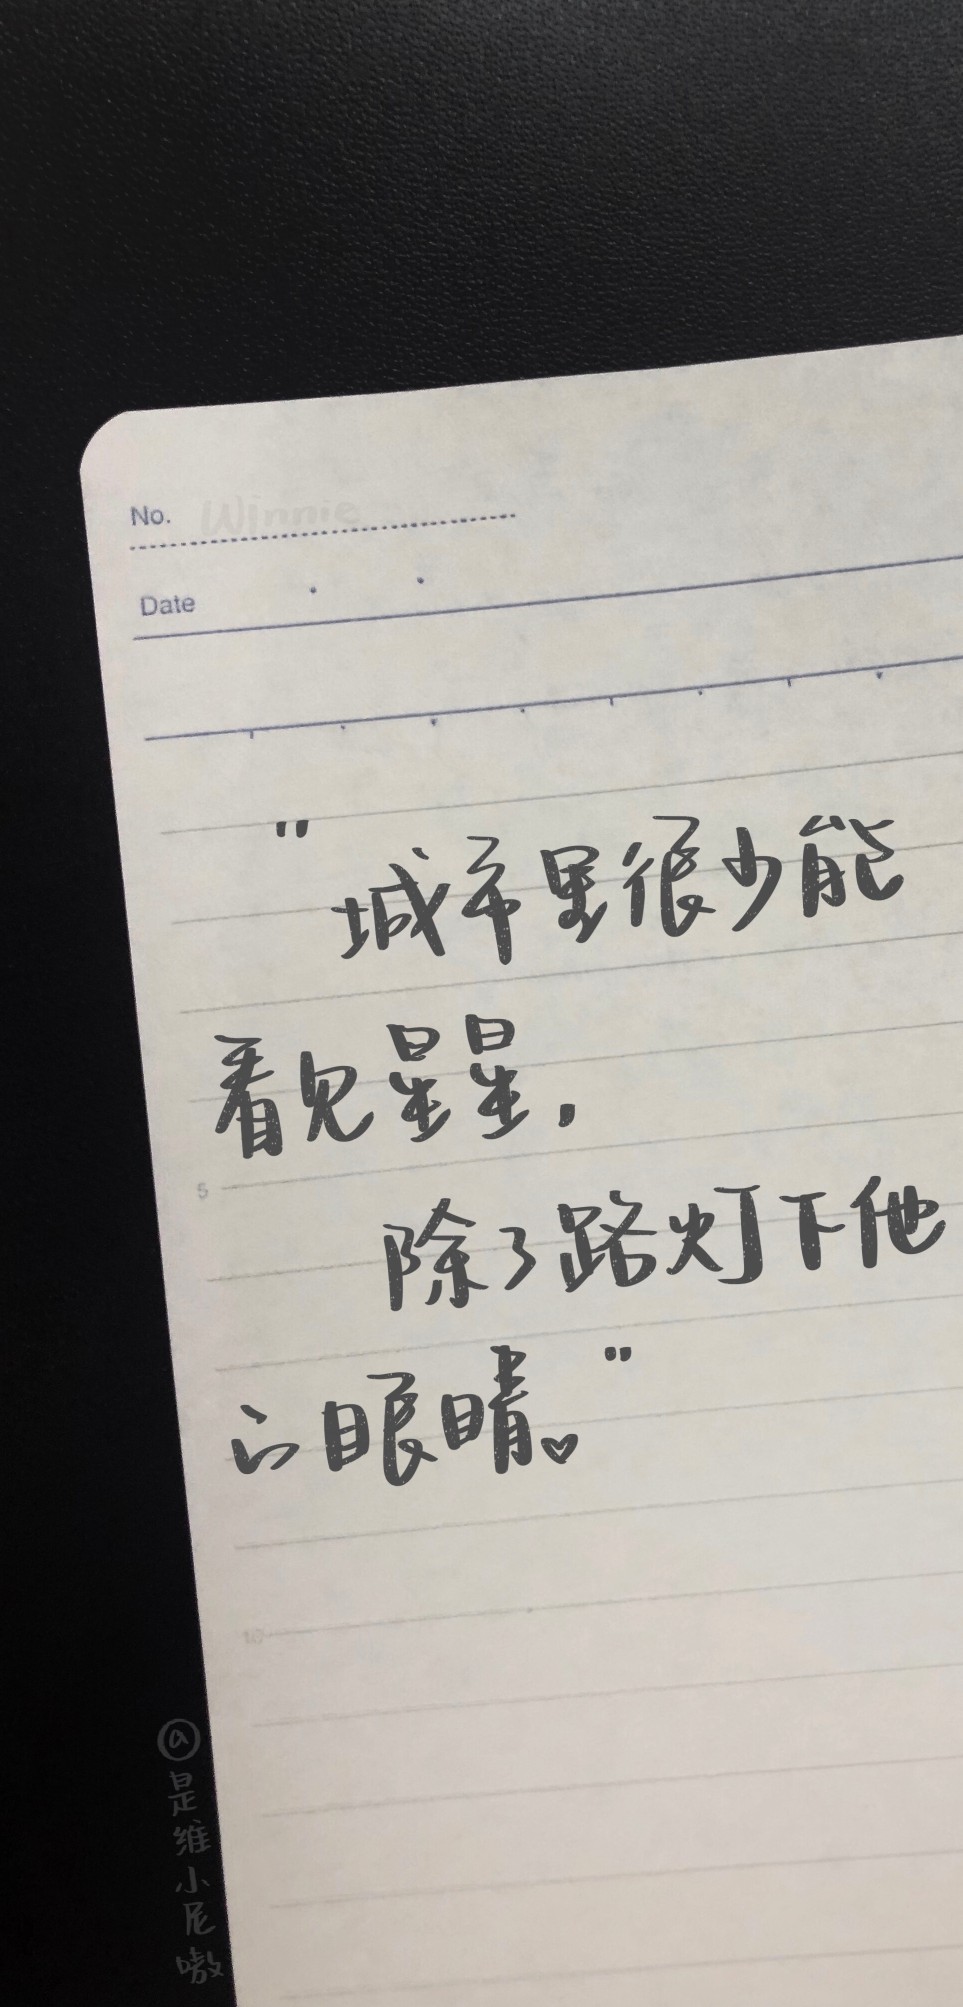 No. Winnie
Date
"城市里很少能
看见星星,
5
除了路灯下他
的眼睛。"
10
@是维小尼嗷